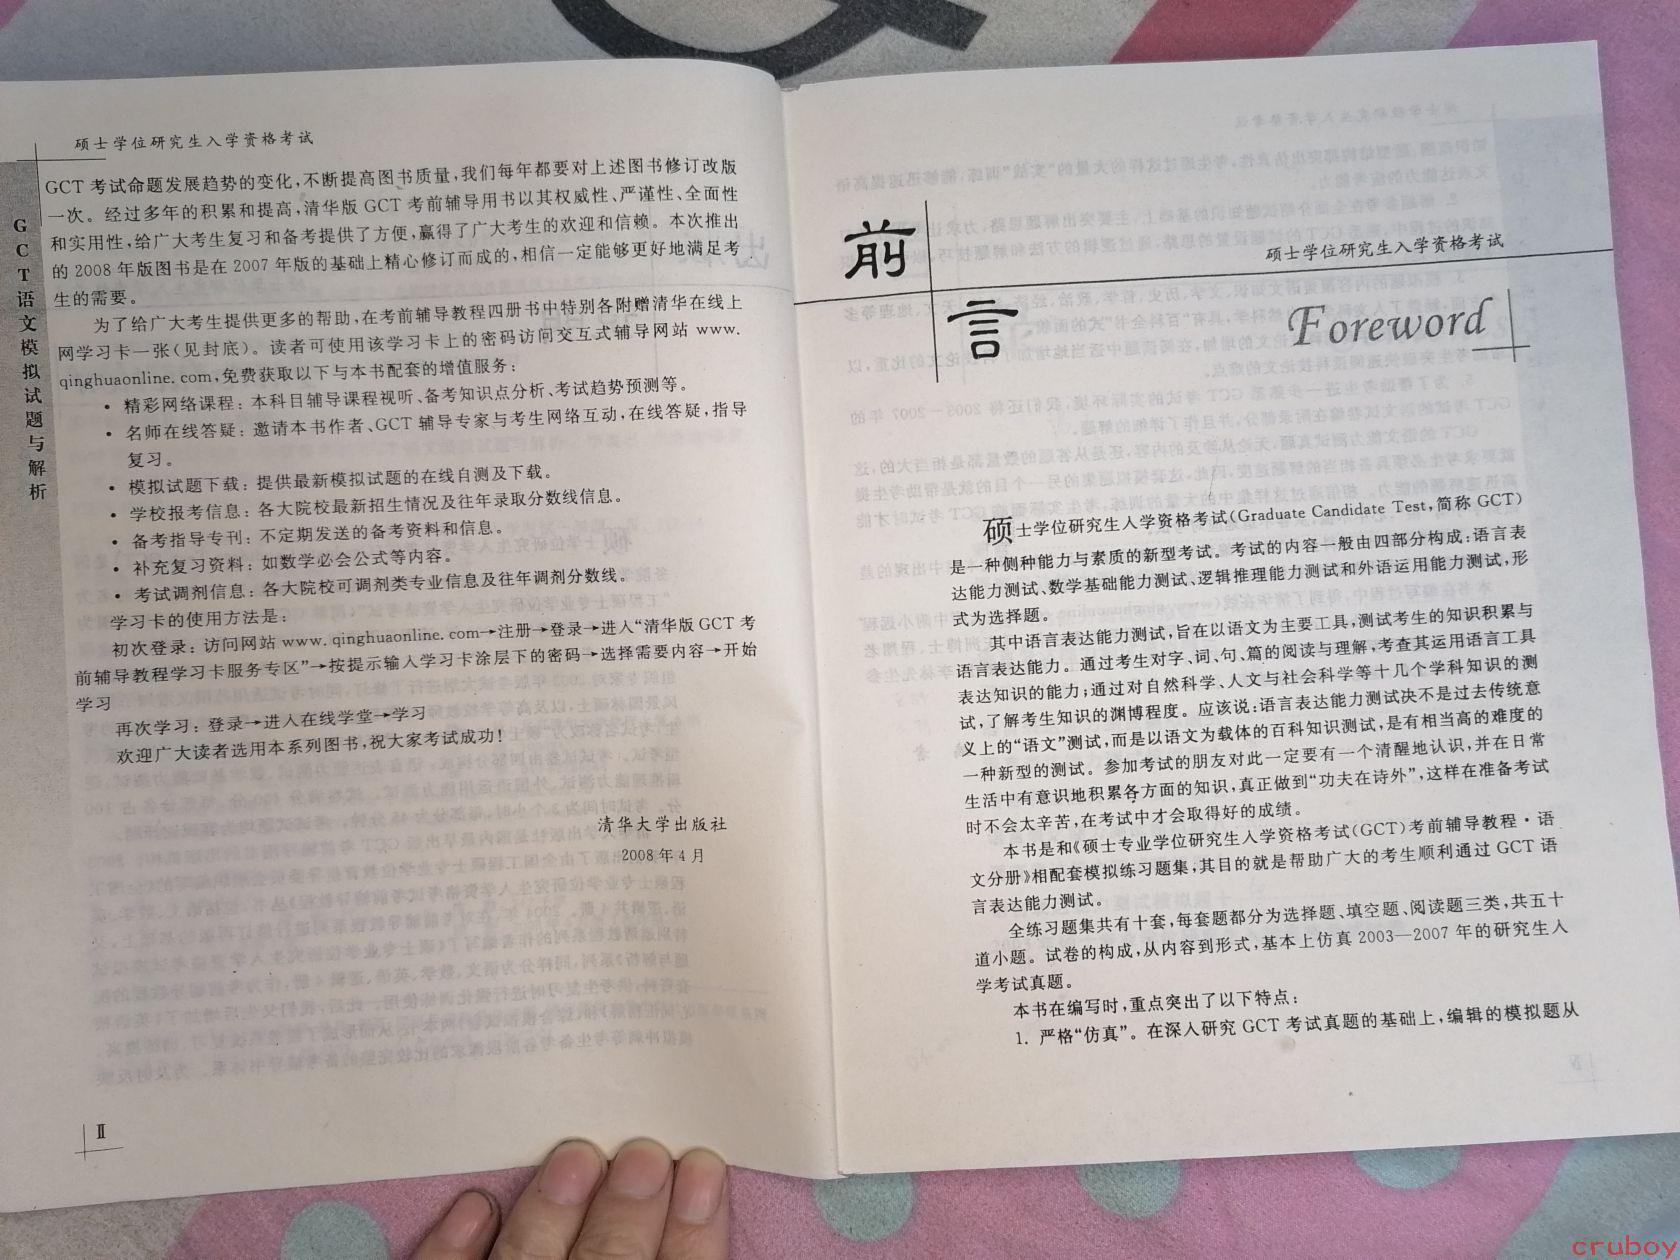 硕士学位研究生入学资格考试
GCT语文模拟试题与解析
GCT 考试命题发展趋势的变化,不断提高图书质量,我们每年都要对上述图书修订改版
一次。经过多年的积累和提高,清华版 GCT 考前辅导用书以其权威性、严谨性、全面性
和实用性,给广大考生复习和备考提供了方便,赢得了广大考生的欢迎和信赖。本次推出
的 2008 年版图书是在 2007 年版的基础上精心修订而成的,相信一定能够更好地满足考
生的需要。
为了给广大考生提供更多的帮助,在考前辅导教程四册书中特别各附赠清华在线上
网学习卡一张(见封底)。读者可使用该学习卡上的密码访问交互式辅导网站 www.
qinghuaonline.com,免费获取以下与本书配套的增值服务:
• 精彩网络课程: 本科目辅导课程视听、备考知识点分析、考试趋势预测等。
• 名师在线答疑: 邀请本书作者、GCT 辅导专家与考生网络互动,在线答疑,指导
复习。
• 模拟试题下载: 提供最新模拟试题的在线自测及下载。
• 学校报考信息: 各大院校最新招生情况及往年录取分数线信息。
• 备考指导专刊: 不定期发送的备考资料和信息。
• 补充复习资料: 如数学必会公式等内容。
• 考试调剂信息: 各大院校可调剂类专业信息及往年调剂分数线。
学习卡的使用方法是:
初次登录: 访问网站 www.qinghuaonline.com→注册→登录→进入“清华版 GCT 考
前辅导教程学习卡服务专区”→按提示输入学习卡涂层下的密码→选择需要内容→开始
学习
再次学习: 登录→进入在线学堂→学习
欢迎广大读者选用本系列图书,祝大家考试成功!
清华大学出版社
2008 年 4 月
Ⅱ
前言
硕士学位研究生入学资格考试
Foreword
硕士学位研究生入学资格考试(Graduate Candidate Test,简称 GCT)
是一种侧种能力与素质的新型考试。考试的内容一般由四部分构成:语言表
达能力测试、数学基础能力测试、逻辑推理能力测试和外语运用能力测试,形
式为选择题。
其中语言表达能力测试,旨在以语文为主要工具,测试考生的知识积累与
语言表达能力。通过考生对字、词、句、篇的阅读与理解,考查其运用语言工具
表达知识的能力;通过对自然科学、人文与社会科学等十几个学科知识的测
试,了解考生知识的渊博程度。应该说:语言表达能力测试决不是过去传统意
义上的“语文”测试,而是以语文为载体的百科知识测试,是有相当高的难度的
一种新型的测试。参加考试的朋友对此一定要有一个清醒地认识,并在日常
生活中有意识地积累各方面的知识,真正做到“功夫在诗外”,这样在准备考试
时不会太辛苦,在考试中才会取得好的成绩。
本书是和《硕士专业学位研究生入学资格考试(GCT)考前辅导教程·语
文分册》相配套模拟练习题集,其目的就是帮助广大的考生顺利通过 GCT 语
言表达能力测试。
全练习题集共有十套,每套题都分为选择题、填空题、阅读题三类,共五十
道小题。试卷的构成,从内容到形式,基本上仿真 2003—2007 年的研究生入
学考试真题。
本书在编写时,重点突出了以下特点:
1. 严格“仿真”。在深入研究 GCT 考试真题的基础上,编辑的模拟题从
cruboy